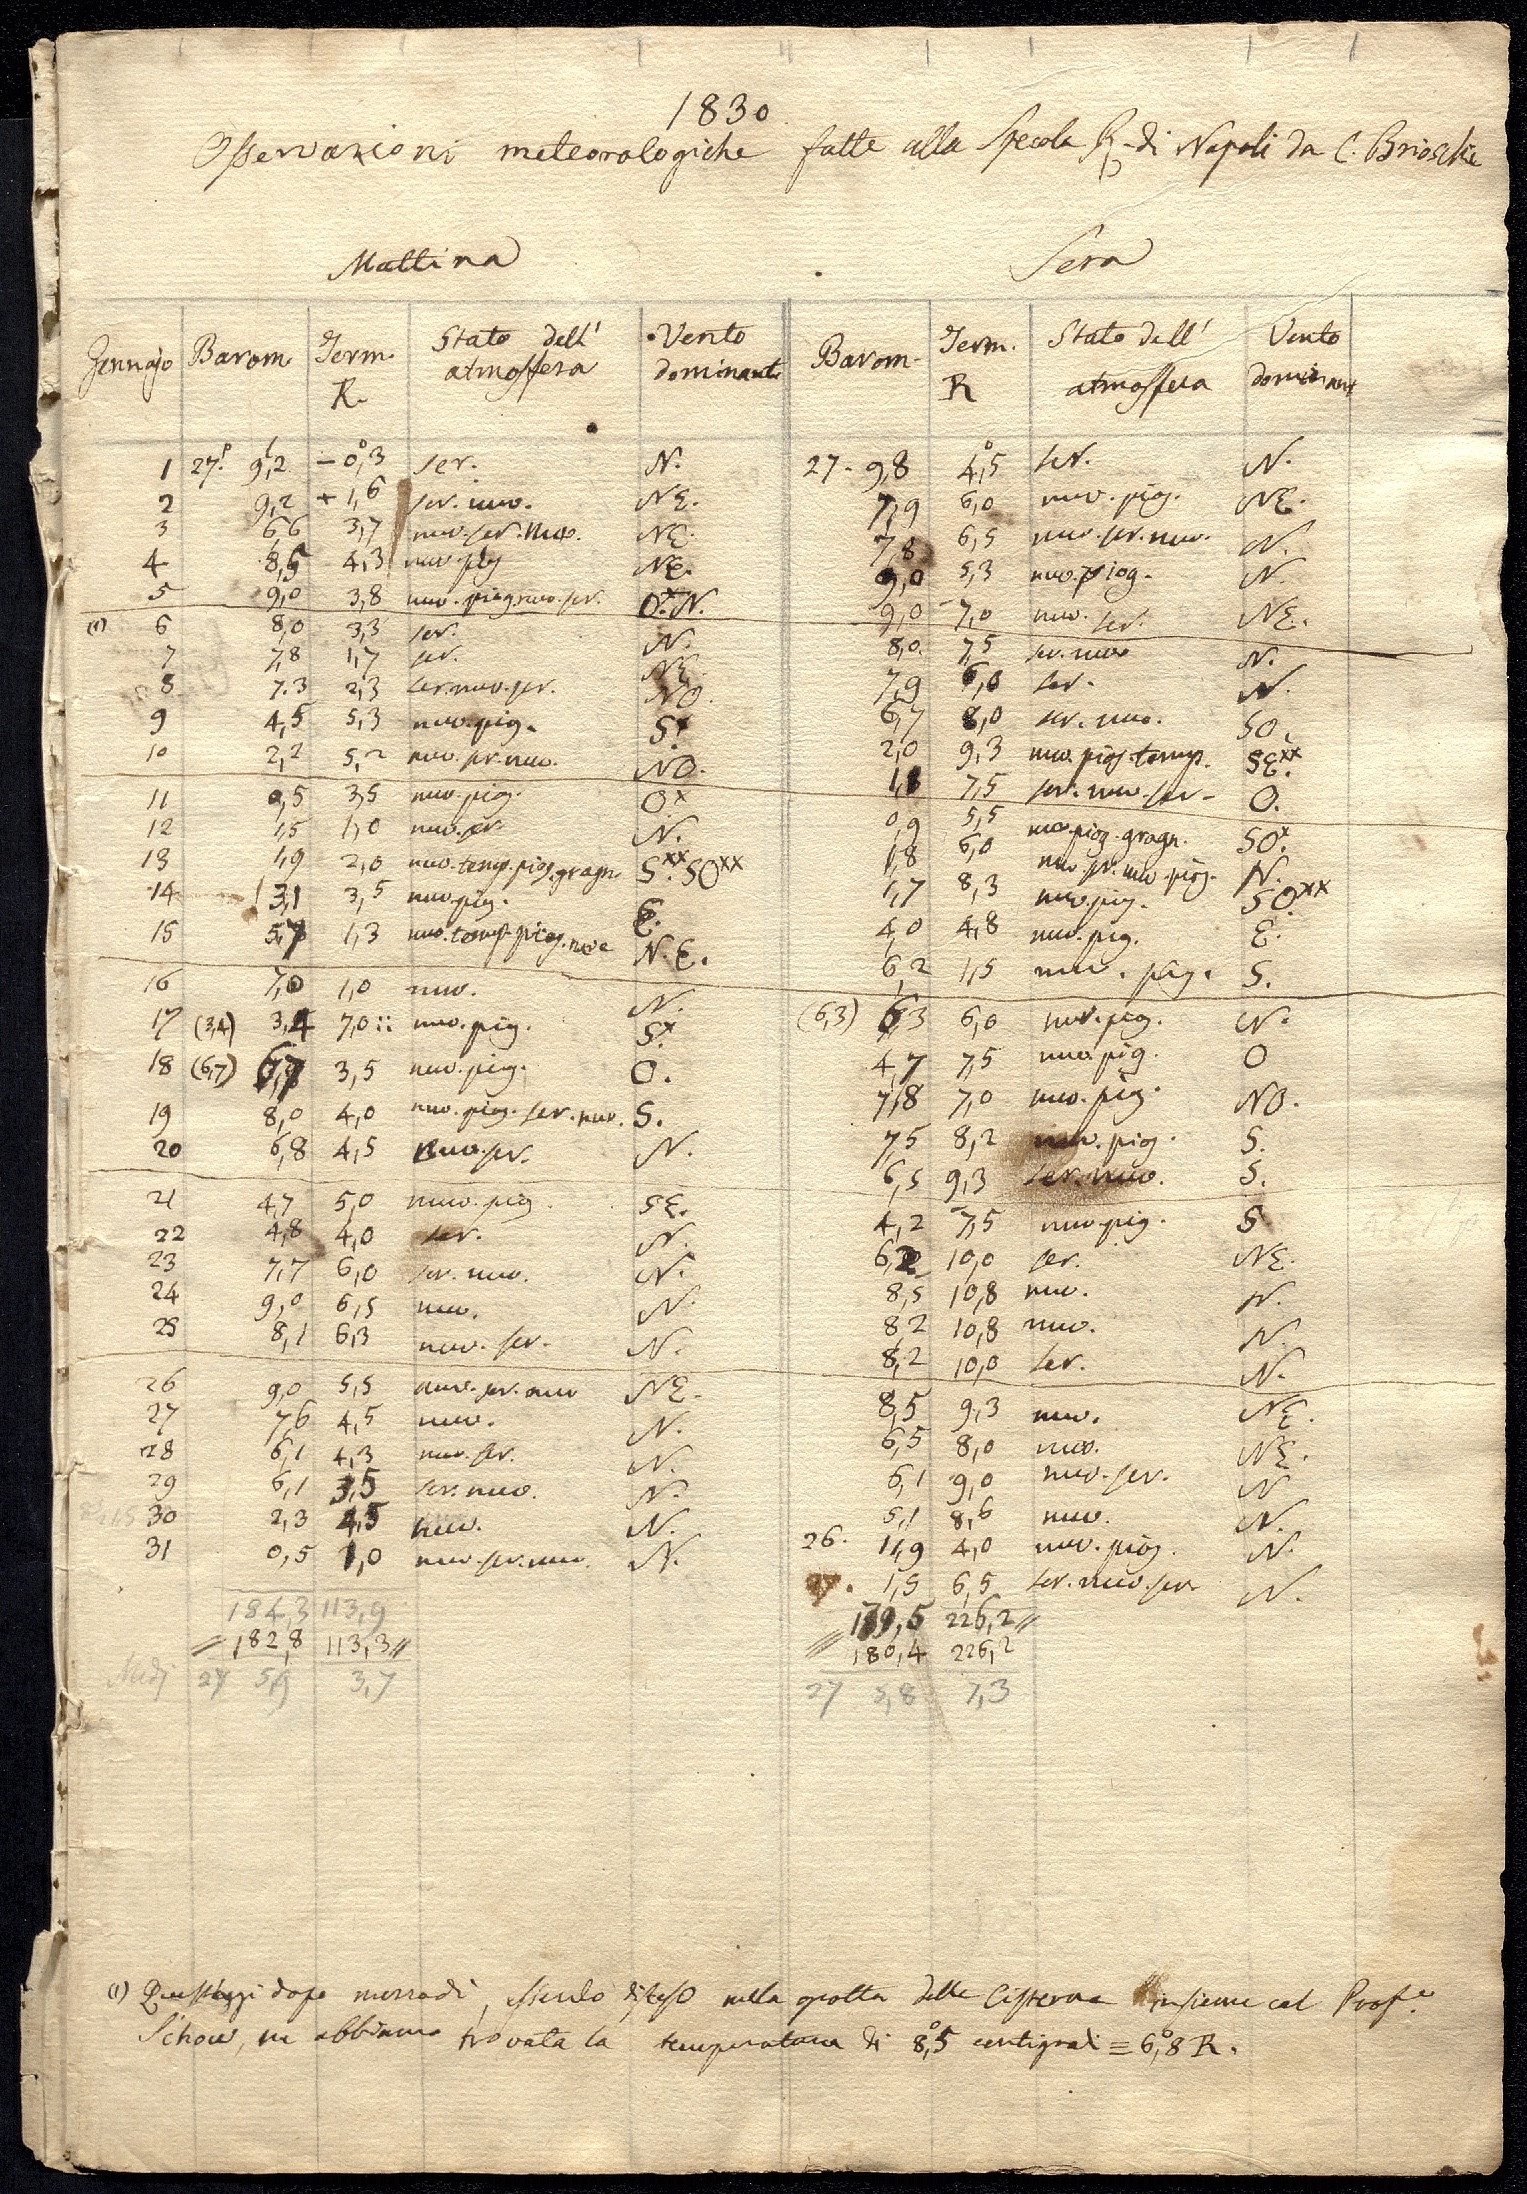 1830
Osservazioni meteorologiche fatte alla Specola R. di Napoli da C. Brioschi
Mattina Sera
Gennajo Barom. Term. R. Stato dell' atmosfera Vento dominante Barom. Term. R Stato dell' atmosfera Vento dominante
1 27.p 9,l2 -0,°3 ser. N. 27. 9,8 4,°5 ser. N.
2 9,2 +1,6 ser. nuv. NE. 7,9 6,0 nuv. piog. NE.
3 6,6 3,7 nuv. ser. nuv. NE. 7,8 6,5 nuv. ser. nuv. N.
4 8,5 4,3 nuv. piog NE. 9,0 5,3 nuv. piog. N.
5 9,0 3,8 nuv. piog nuv. ser. O.x N. 9,0 7,0 nuv. ser. NE.
(1) 6 8,0 3,3 ser. N. 8,0. 7,5 ser. nuv N.
7 7,8 1,7 ser. NE. 7,9 6,0 ser. N.
8 7.3 2,3 ser. nuv. ser. NO. 6,7 8,0 ser. nuv. SO.
9 4,5 5,3 nuv. pig. S.x 2,0 9,3 nuv. piog. temp. SE.xx
10 2,2 5,2 nuv. ser. nuv. NO. 1,8 7,5 ser. nuv. ser. O.
11 0,5 3,5 nuv. piog. Ox 0,9 5,5 nuv. piog. gragn. SO.x
12 1,5 1,0 nuv. ser N. 1,8 6,0 nuv. ser. nuv. piog. N.
13 1,9 2,0 nuv. temp. piog. gragn S.xx SOxx 1,7 8,3 nuv. pig. SO.xx
14 3,1 3,5 nuv. pig. E. 4,0 4,8 nuv. pig. E.
15 5,7 1,3 nuv. temp. piog. neve N.E. 6,2 1,5 nuv. piog. S.
16 7,0 1,0 nuv. N. (6,3) 6,3 6,0 nuv. piog. N.
17 (3,4) 3,4 7,0:: nuv. pig. S.x 4,7 7,5 nuv. pig. O
18 (6,7) 6,7 3,5 nuv. pig. O. 7,8 7,0 nuv. pig. NO.
19 8,0 4,0 nuv. piog. ser. nuv. S. 7,5 8,2 nuv. piog. S.
20 6,8 4,5 nuv. ser. N. 6,5 9,3 ser. nuv. S.
21 4,7 5,0 nuv. pig. SE. 4,2 7,5 nuv. pig. S
22 4,8 4,0 ser. N. 6,2 10,0 ser. NE.
23 7,7 6,0 ser. nuv. N. 8,5 10,8 nuv. N.
24 9,0 6,5 nuv. N. 8,2 10,8 nuv. N.
25 8,1 6,3 nuv. ser. N. 8,2 10,0 ser. N.
26 9,0 5,5 nuv. ser. nuv NE. 8,5 9,3 nuv. NE.
27 7,6 4,5 nuv. N. 6,5 8,0 nuv. NE.
28 6,1 4,3 nuv. ser. N. 6,1 9,0 nuv. ser. N
29 6,1 3,5 ser. nuv. N. 5,1 8,6 nuv. N.
30 2,3 4,5 nuv. N. 26. 11,9 4,0 nuv. piog. N.
31 0,5 1,0 nuv. ser. nuv. N. 27. 1,5 6,5 ser. nuv. ser N.
184,3 113,9 179,5 226,2
182,8 113,3 180,4 226,2
Medj 27 5,9 3,7 27 5,8 7,3
(1) Quest'oggi dopo mezzodì, essendo disceso nella grotta delle Cisterne insieme col Prof.e
Schow, ne abbiamo trovata la temperatura di 8,°5 centigradi = 6,°8 R.